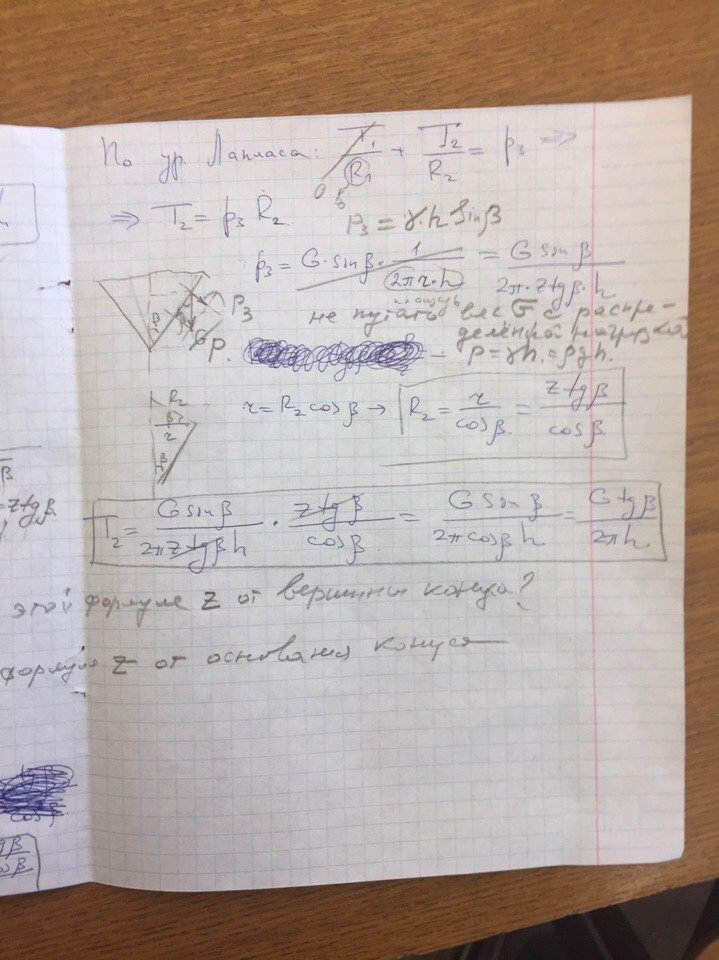 По ур. Лапласа: T₁/R₁ + T₂/R₂ = p₃ ⇒
0 ∞
⇒ T₂ = p₃ R₂. P₃ = γ·h Sinβ
p₃ = G·sinβ · 1/(2πr·h) = G sinβ/(2π·z tgβ·h)
площадь
β P₃
G
p.
не путать вес G с распре-
делённой нагрузкой
– P = γh = ρgh.
R₂
β
r
β
r = R₂ cosβ → R₂ = r/cosβ = z tgβ/cosβ
T₂ = G sinβ/(2πz tgβ h) · z tgβ/cosβ = G sinβ/(2π cosβ h) = G tgβ/(2πh)
этой формуле z от вершины конуса?
формуле z от основания конуса
β
= z tgβ
gβ
osβ